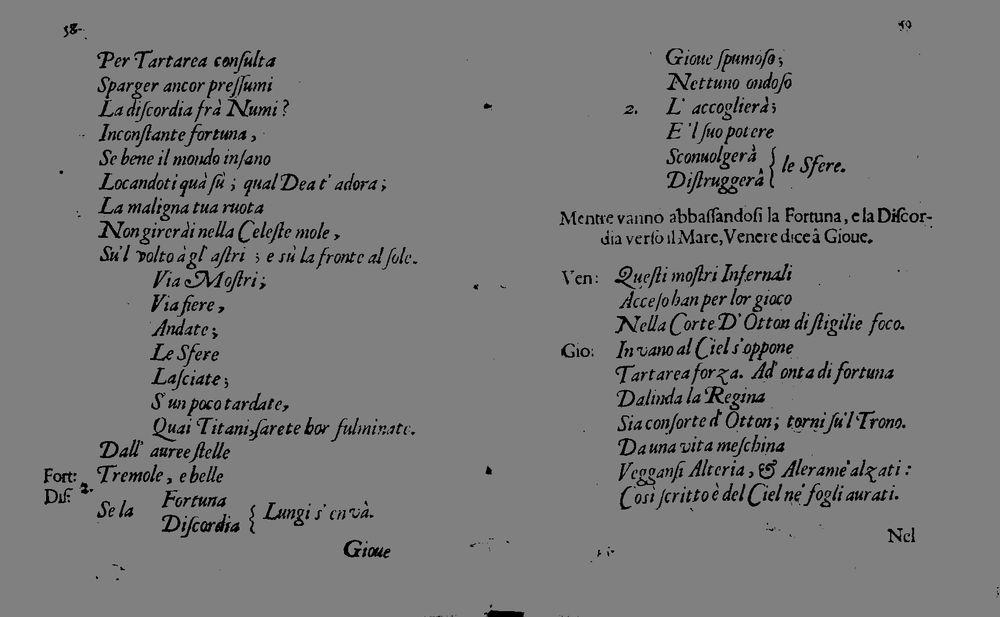 58
Per Tartarea conſulta
Sparger ancor preſſumi
La diſcordia frà Numi?
Inconſtante fortuna,
Se bene il mondo inſano
Locandoti quà ſù; qual Dea t' adora;
La maligna tua ruota
Non girerài nella Celeſte mole,
Sù'l volto à gl' aſtri; e sù la fronte al ſole.
Via Moſtri;
Via fiere,
Andate;
Le Sfere
Laſciate;
S' un poco tardate,
Quai Titani, ſarete hor fulminate.
Dall' auree ſtelle
Fort: Tremole, e belle
Diſ: 2.
Se la Fortuna
Diſcordia { Lungi s' en và.
Gioue
59
Gioue ſpumoſo;
Nettuno ondoſo
2. L' accoglierà;
E 'l ſuo potere
Sconuolgerà
Diſtruggerà { le Sfere.
Mentre vanno abbaſſandoſi la Fortuna, e la Diſcor-
dia verſo il Mare, Venere dice à Gioue.
Ven: Queſti moſtri Infernali
Acceſo han per lor gioco
Nella Corte D' Otton di ſtigilie foco.
Gio: In vano al Ciel s'oppone
Tartarea forza. Ad' onta di fortuna
Dalinda la Regina
Sia conſorte d' Otton; torni ſu'l Trono.
Da una vita meſchina
Vegganſi Alteria, & Alerame alzati:
Così ſcritto è del Ciel ne' fogli aurati.
Nel